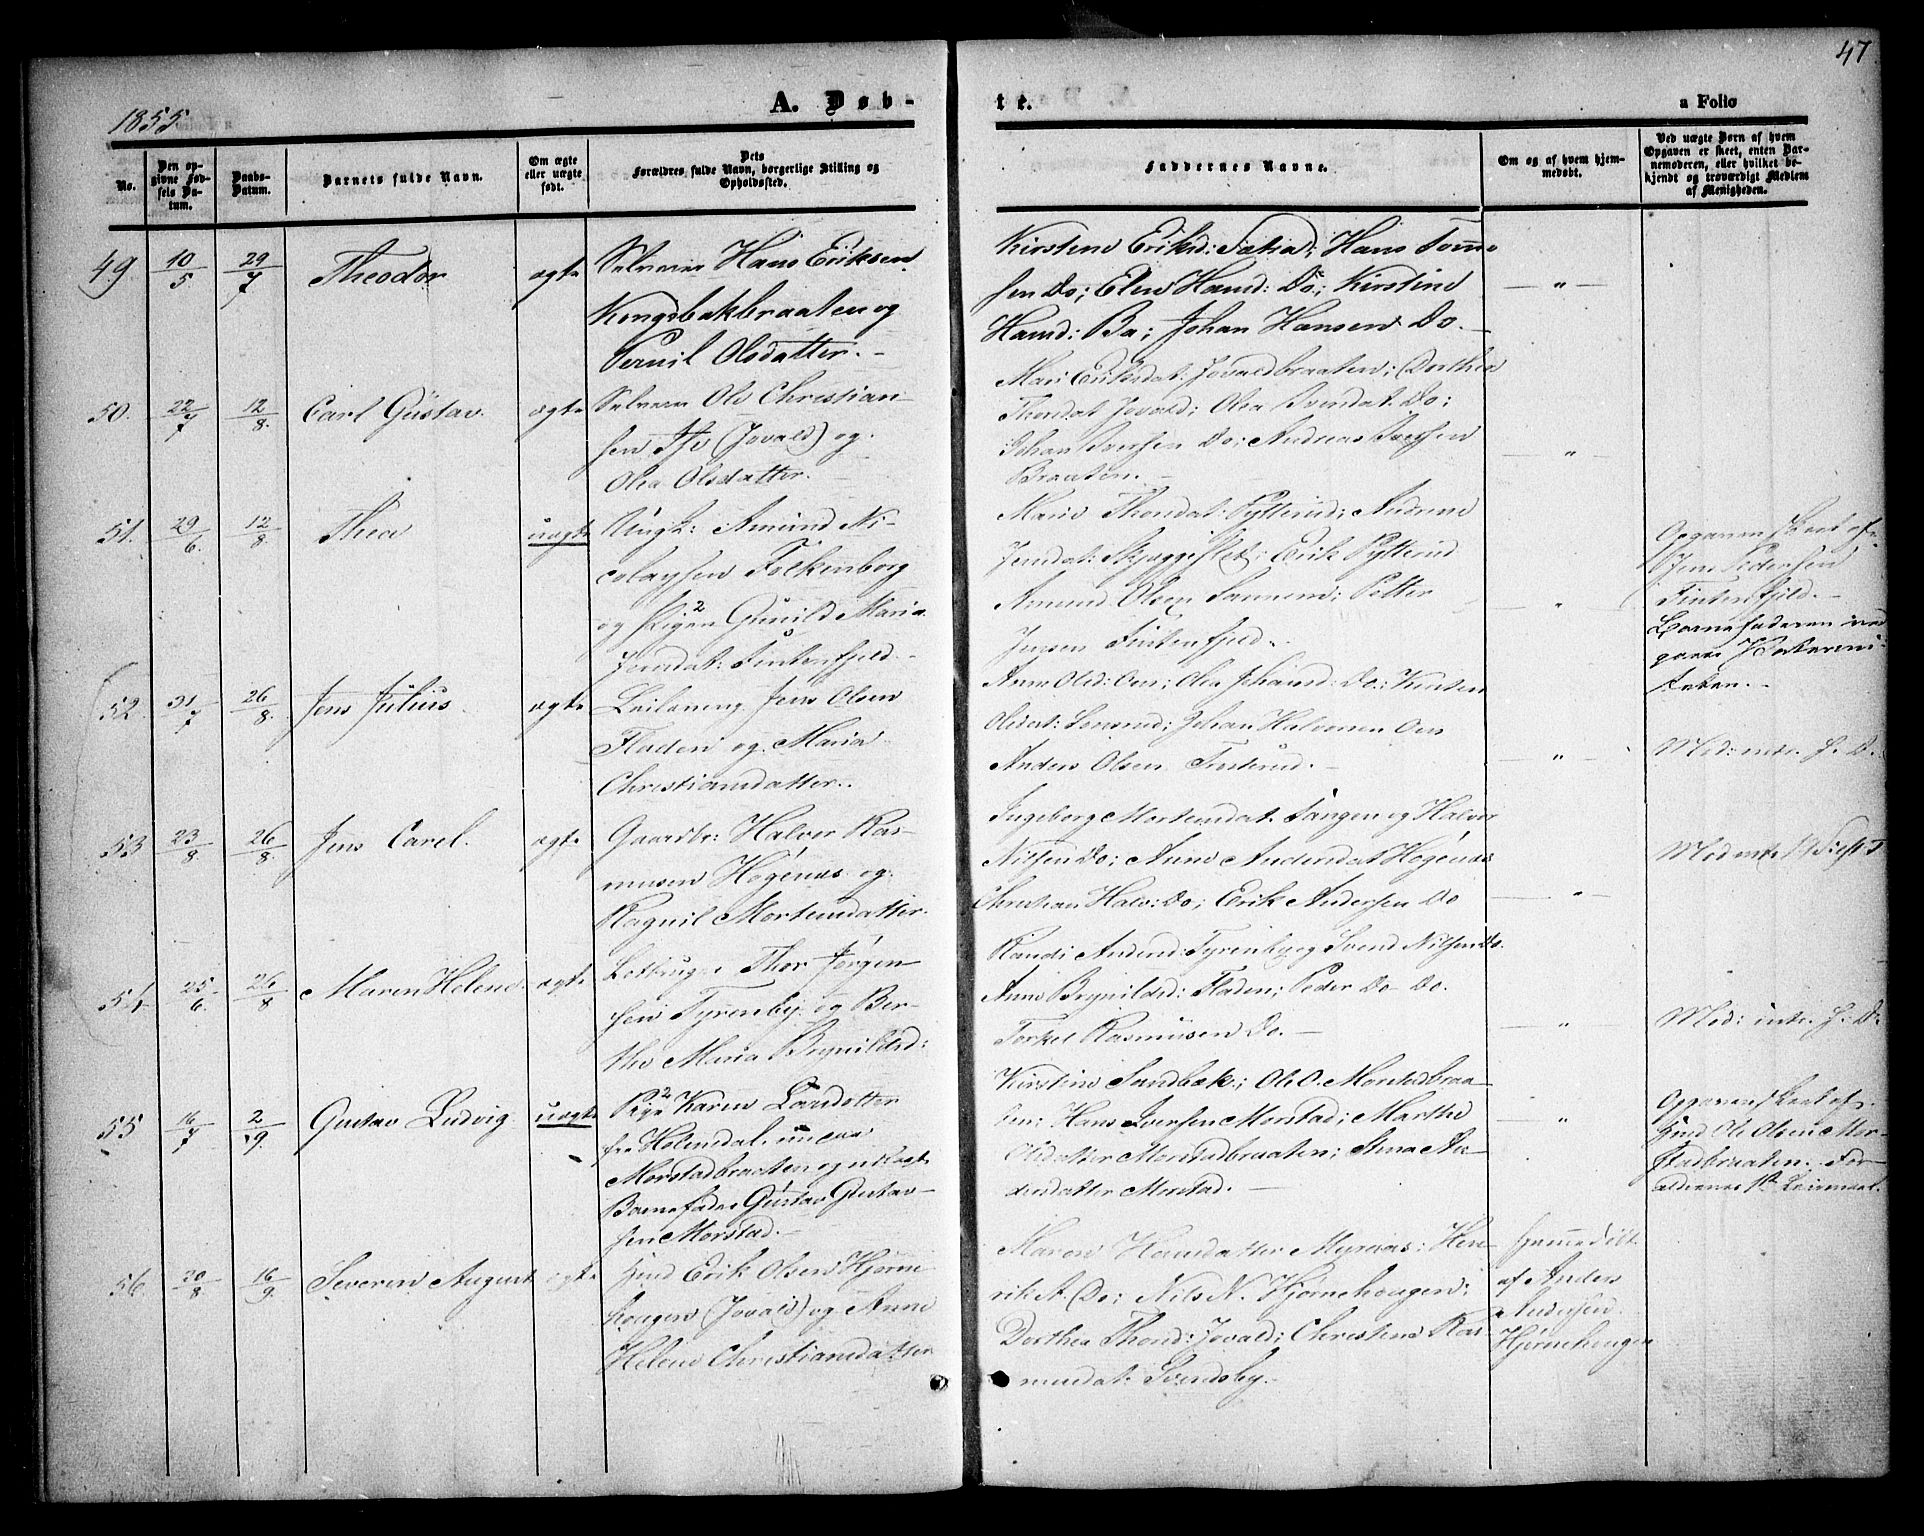 47
1855
A. Døb-
te.
a Folio
No.
Den opgivne Fødsels Datum.
Daabs-Datum.
Barnets fulde Navn.
Om ægte eller uægte født.
Dets Forældres fulde Navn, borgerlige Stilling og Opholdssted.
Faddernes Navne.
Om og af hvem hjemmedøbt.
Ved uægte Børn af hvem Opgaven er skeet, enten Barnemoderen, eller hvilket bekjendt og troværdigt Medlem af Menigheden.
49 10/5 29/7 Theodor ægte
Selveier Hans Eriksen
Kongsbakbraaten og
Pernil Olsdatter.
Kirstine Eriksd: Hans
sen Do; Elen Hansd: Do; Kirstine
Hansd: Ba; Johan Hansen Do.
— " —
50. 22/7 12/8. Carl Gustav. ægte
Selveier Ole Christian-
sen (Jovald) og
Olea Olsdatter.
Mari Eriksdat: Jovaldbraaten; Dorthea
Thordat Jovald; Olea Do;
Johan Iversen Do; Andreas Iversen
Braaten.
— " —
51. 29/6. 12/8. Thea uægte
Ungk: Amund Ni-
colaysen Folkenborg
og Pigen Gunild Maria
Jensdat: Fintenfjeld.
Mari Thordat: Pytterud;
Jensdat: Erik Pytterud
Amund Olsen Petter
Jensen Fintenfjeld.
"
Opgaven skeet af
Jens Pedersen
Fintenfjeld.
Barnefaderen ved
52. 31/7 26/8. Jens Julius. ægte
Leilending Jens Olsen
Fladen og Maria
Christiansdatter.
Anne Olsd: Oer; Olea Johansd: Do; Kirsten
Olsdat: Johan Halvorsen Oer
Anders Olsen
"
Med: intr. H. D.
53 23/8. 26/8. Jens Carel. ægte
Gaardbr: Halver Ras-
musen Høgenæs og
Ragnil Mortensdatter.
Ingeborg Mortensdat. Tangen og Halver
Nilsen Do; Anne Andersdat Høgenæs
Christian Halv: Do; Erik Andersen Do
"
Med intr. 19 Sept
54. 25/6. 26/8 Maren Helene. ægte
Thor Jørgen-
sen Tyrenby og Ber-
the Maria Brynildsd:
Randi Andersd: Tyrenby og Svend Nilsen Do.
Anne Brynildsd: Fladen; Peder Do Do.
Torkel Rasmusen Do.
"
Med: intr. H: D:
55 16/7 2/9. Gustav Ludvig uægte
Pige Karen Larsdatter
fra Holendal,
Morstadbraaten og
Barnefader Gustav Gustav-
sen Morstad.
Kirstine Sandbæk; Ole O. Morstadbraa-
ten; Hans Iversen Morstad; Marthe
Olsdatter Morstadbraaten; Anna An-
dersdatter Morstad.
"
Opgaven skeet af
Hmd Ole Olsen Mor-
stadbraaten. For-
ældrenes 1st Leiermaal.
56. 30/8 16/9. Severin August ægte
Hmd Erik Olsen Hjørne-
hougen (Jovald) og Anne
Helene Christiansdatter
Maren Hansdatter Myrnæs; Hen-
rik A. Do; Nils N. Hjørnehougen;
Dorthea Thord: Jovald; Christine Ras-
musdat: Svendsby.
hjemmedøbt
af Anders
Andersen
Hjørnehougen